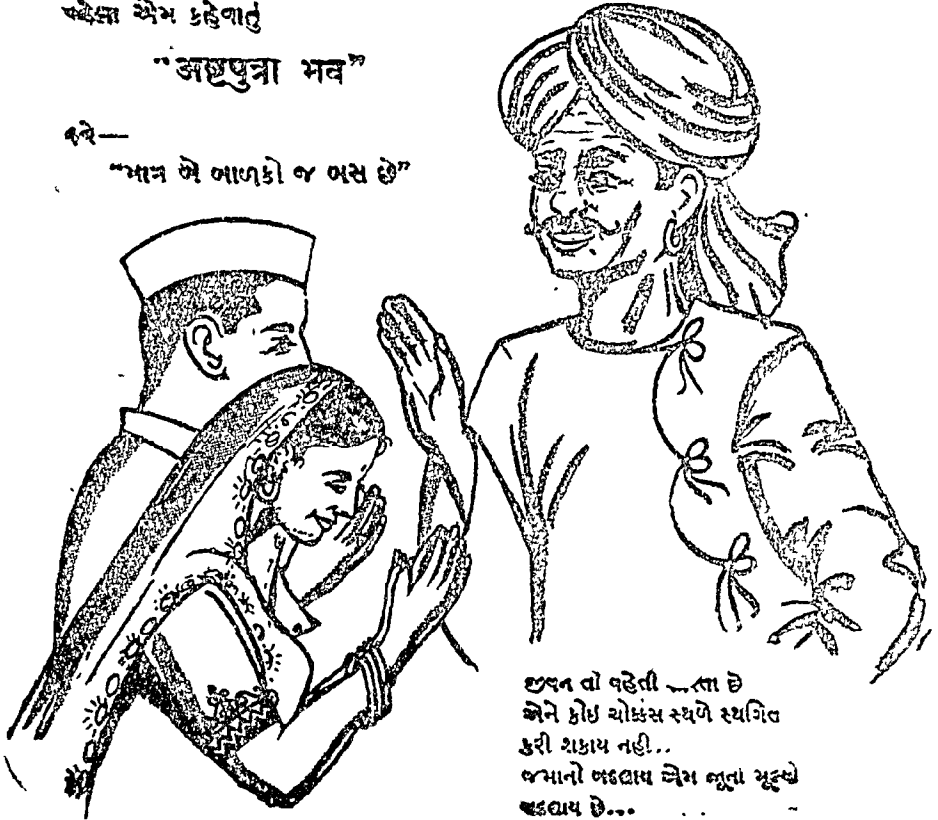 પહેલા એમ કહેવાતું
"अष्टपुत्रा भव"
હવે—
"માત્ર બે બાળકો જ બસ છે"
જીવન તો વહેતી છે
એને કોઇ ચોક્કસ સ્થળે સ્થગિત
કરી શકાય નહી..
જમાનો બદલાય એમ જૂના મૂલ્યો
બદલાય છે...